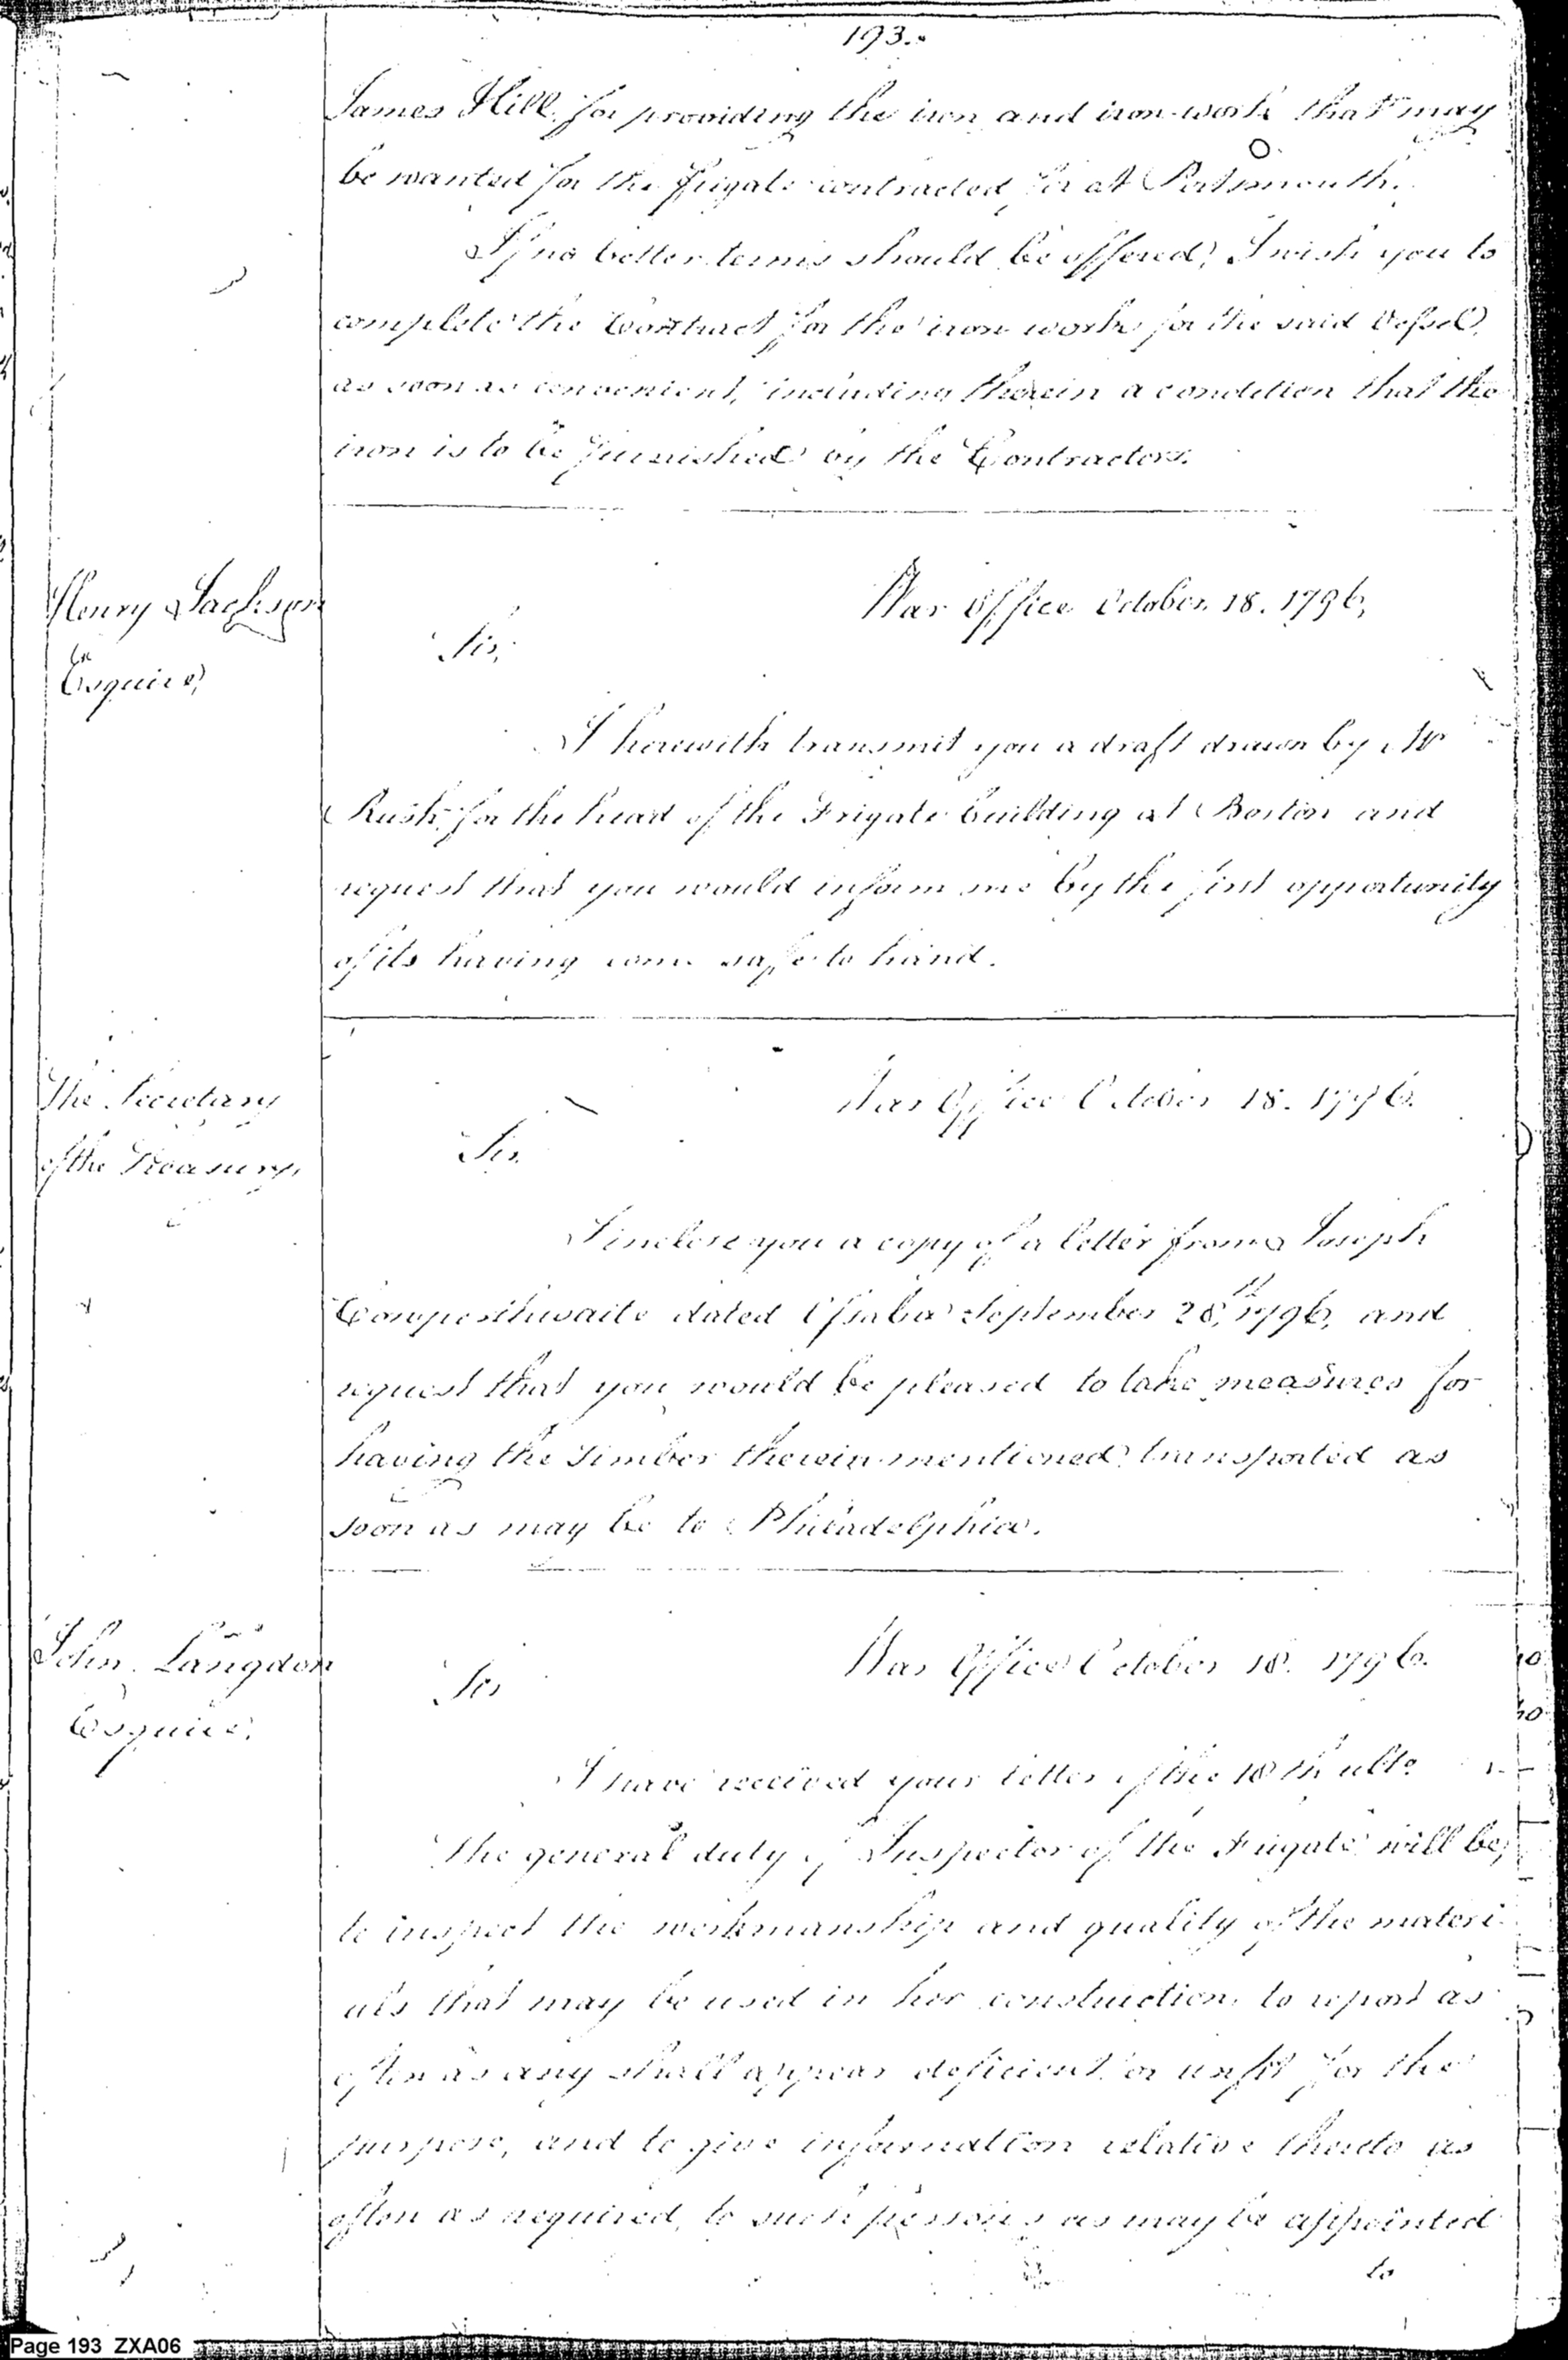 193.
James Hill, for providing the iron and iron-work that may
be wanted for the frigate contracted for at Portsmouth.
If no better terms should be offered, I wish you to
complete the Contract for the iron work for the said Vessel,
as soon as convenient, including therein a condition that the
iron is to be furnished by the Contractors.
Henry Jackson
Esquire,
War Office October 18. 1796,
Sir,
I herewith transmit you a draft drawn by Mr
Rush, for the head of the Frigate building at Boston and
request that you would inform me by the first opportunity
of its having come safe to hand.
The Secretary
of the Treasury,
War Office October 18. 1796.
Sir.
I inclose you a copy of a letter from Joseph
dated September 28th 1796, and
request that you would be pleased to take measures for
having the Timber therein mentioned transported as
soon as may be to Philadelphia.
John Langdon
Esquire,
War Office October 18. 1796.
Sir
I have received your letter of the 10th ulto.
The general duty of Inspector of the Frigate will be,
to inspect the workmanship and quality of the materi
als that may be used in her construction, to report as
often as any shall appear deficient or unfit for the
purpose, and to give information relative thereto as
often as required, to such persons as may be appointed
to
Page 193 ZXA06